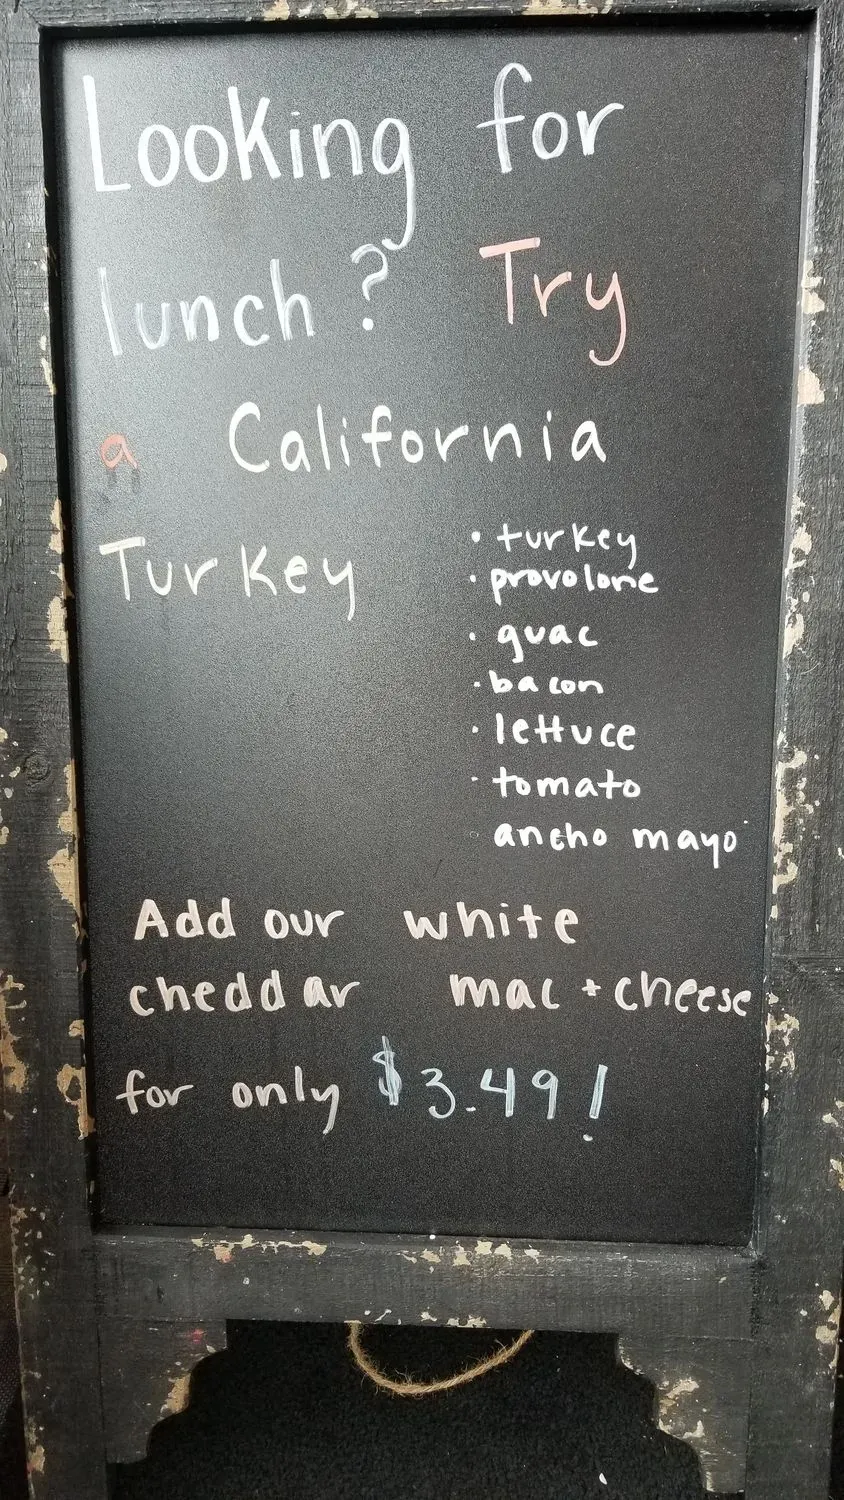 Looking for
lunch? Try
a California
Turkey
• turkey
• provolone
• guac
• bacon
• lettuce
• tomato
• ancho mayo
Add our white
cheddar mac + cheese
for only $3.49!